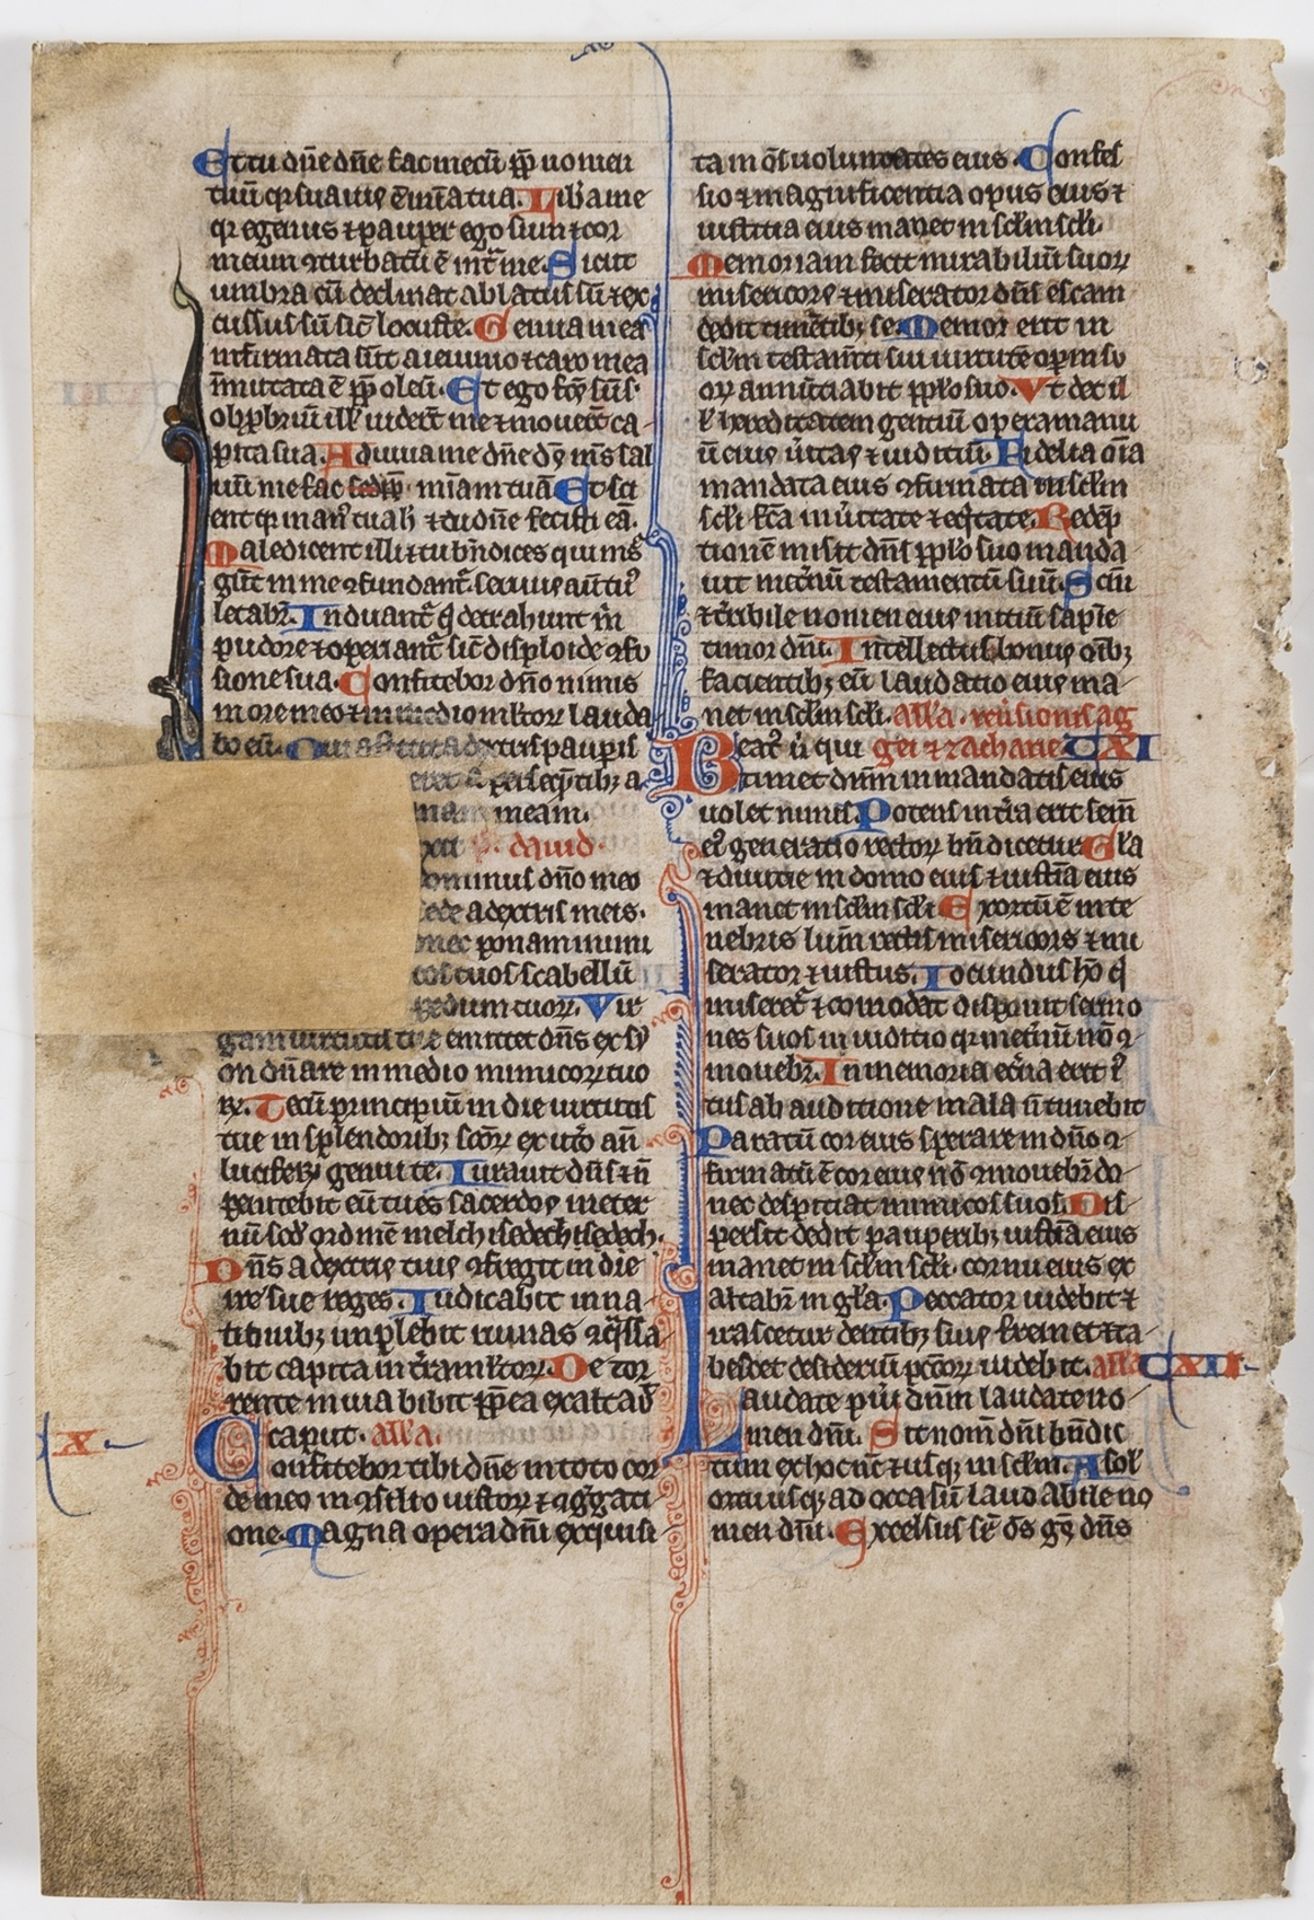 Et tu dn̄e dn̄e fac mecū ꝓp̄ nomen
tuū qꝛ suauis ē mīa tua. Lib̄a me
qꝛ egenus ⁊ pauper ego sum ⁊ cor
meum ꝯturbatū ē int̄ me. Sicut
umbra cū declinat ablatus sū ⁊ ex
cussus sū sic̄ locuste. Genua mea
infirmata sūt a ieiunio ⁊ caro mea
īmutata ē ꝓp̄ oleū. Et ego fc̄s sū
obp̄briū ill' uider̄t me ⁊ mouer̄t ca-
pita sua. Adiuua me dn̄e ds̄ ms̄ sal
uū me fac sedp̄ miam tuā Et sci
ent qꝛ man' tua h̄ ⁊ tu dn̄e fecisti eā.
Maledicent illi ⁊ tu bn̄dices qui ins̄
gūt in me ꝯfundant̄. seruus aūt tu'
letabr̄. Induant̄ q̄ detrahunt m̄
pudore ⁊ operiant̄ sic̄ disploide ꝯfu
sione sua. Confitebor dn̄o nimis
in ore meo ⁊ in medio mltoꝝ lauda
bo eū. Qui astitit a dextris paupis
a ꝑsequētibꝫ a
nam meam.
dauid.
dominus dn̄o meo
sede a dextris meis.
donec ponam inimi
cos tuos scabellū
pedum tuoꝝ. Vir
gam uirtutis tue emittet dn̄s ex sy
on dn̄are in medio inimicoꝝ tuo
ꝝ. Tecū principiū in die uirtutis
tue in splendoribꝫ sc̄oꝝ ex ut̄o an̄
luciferꝫ genui te. Iurauit dn̄s ⁊ n̄
penitebit eū tu es sacerdos in eter
nū scd̄ ordinē melchisedech isedech.
Dn̄s a dextris tuis ꝯfregit in die
ire sue reges. Iudicabit in na-
tionibꝫ implebit ruinas ꝯq̄ssa-
bit capita in t̄ra mltoꝝ. De tor
rente in uia bibit ꝓp̄ea exaltab̄
caput. all'a.
X.
Confitebor tibi dn̄e in toto cor
de meo in ꝯsilio iustoꝝ ⁊ ꝯḡgati-
one. Magna opera dn̄i exquisi-
ta in oīs uoluntates eius. Confes
sio ⁊ magnificentia opus eius ⁊
iustitia eius manet in sclm̄ scli.
Memoriam fecit mirabiliū suoꝝ
misericors ⁊ miserator dn̄s escam
dedit timētibꝫ se. Memor erit in
sclm̄ testam̄ti sui uirtutē opm̄ su
oꝝ annūtiabit pplo suo. Vt det il
l' hereditatem gentiū opera manu
ū eius u̇itas ⁊ iuditiū. Fidelia oīa
mandata eius ꝯfirmata in sclm̄
scl'i fc̄a in u̇itate ⁊ eq̄tate. Redēp
tionē misit dn̄s pplo suo manda-
uit in et̄nū testamentū suū. Sc̄m
⁊ t̄ribile nomen eius initiū sapīe
timor dn̄i. Intellectus bonus oīibꝫ
facientibꝫ eū laudatio eius ma-
net in sclm̄ scl'i. all'a. reūsionis ag
Beat' u̇ qui gei ⁊ zacharie CXI
timet dnm̄ in mandatis eius
uolet nimis. Potens in t̄ra erit sem̄
ei' generatio rectoꝝ bn̄dicetur Gl'a
⁊ diuitie in domo eius ⁊ iustīa eius
manet in sclm̄ scl'i Exortū ē in te
nebris lum̄ rectis misericors ⁊ mi
serator ⁊ iustus. Iocundus hō q̄
miseret̄ ⁊ comodat disponit sermo
nes suos in iuditio qꝛ in et̄nū nō ꝯ-
mouebr̄. In memoria et̄na erit i'
tus ab auditione mala n̄ timebit
Paratū cor eius sperare in dn̄o ꝯ-
firmatū ē cor eius nō ꝯmouebr̄ do-
nec despitiat inimicos suos. Dis
persit dedit pauperibꝫ iustīa eius
manet in sclm̄ scl'i. cornu eius ex
altabr̄ in gl'a. Peccator uidebit ⁊
irascetur dentibꝫ suis fremet ⁊ ta-
bescet desideriū pc̄oꝝ. all'a CXII
Laudate pui' dnm̄ laudate no-
men dn̄i. Sit nom̄ dn̄i bn̄dic
tum ex hoc nc̄ ⁊ usqꝫ in sclm̄. A sol'
ortu usqꝫ ad occasū laudabile no
men dn̄i. Excelsus sr̄ os̄ gēs dn̄s